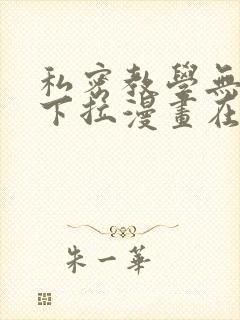 私密教學無
下拉漫畫在
朱一華